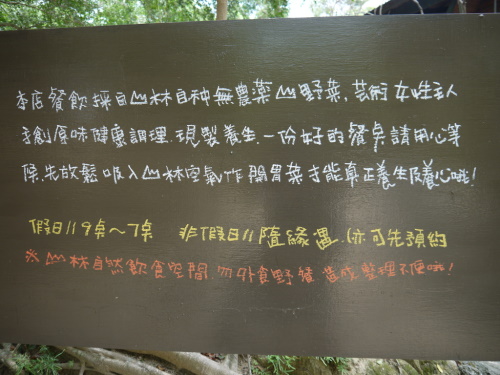 本店餐飲採自山林自种無農藥山野菜,芸術女性主人
手創原味健康調理.現製養生.一份好的餐桌請用心等
候.先放鬆吸入山林空氣作腸胃葉才能真正養生保養心哦!
假日11 9桌~7桌 非假日11隨緣遇.亦可先預約
※山林自然飲食空間勿外食野餐造成整理不便哦!